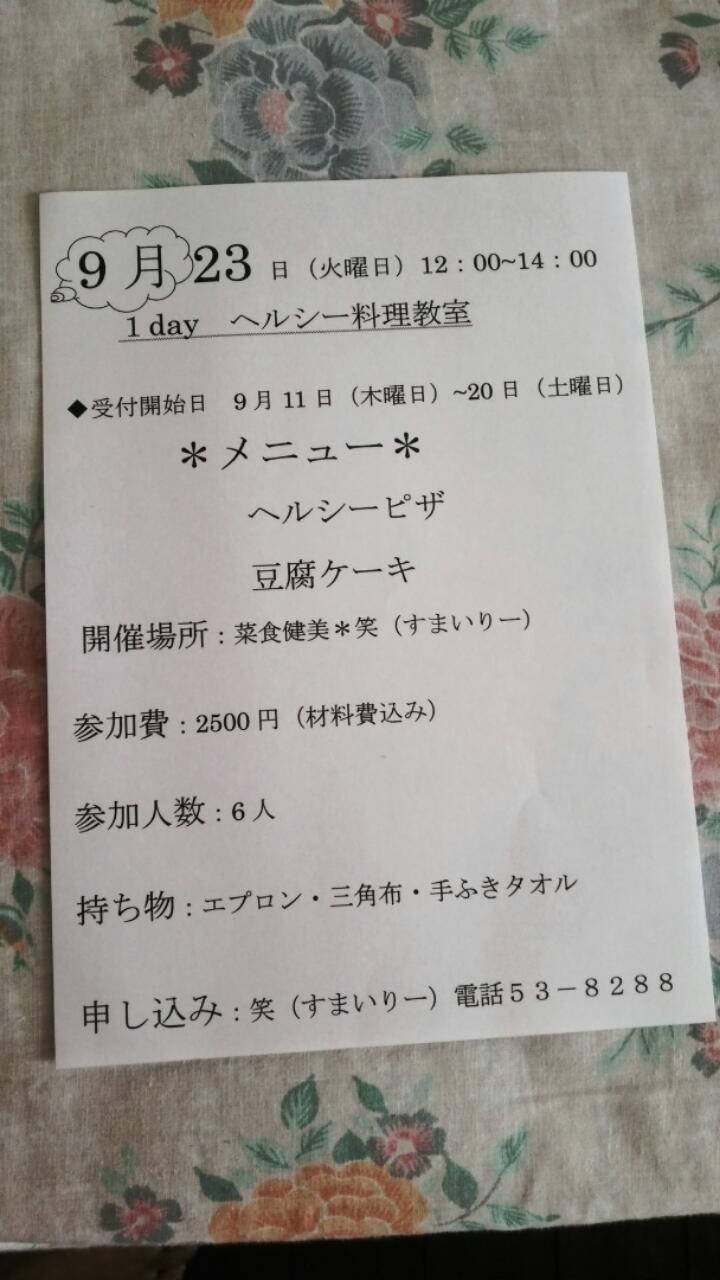 9月23日（火曜日）12：00~14：00
1 day　ヘルシー料理教室
◆受付開始日　9月11日（木曜日）~20日（土曜日）
＊メニュー＊
ヘルシーピザ
豆腐ケーキ
開催場所：菜食健美＊笑（すまいりー）
参加費：2500円（材料費込み）
参加人数：6人
持ち物：エプロン・三角布・手ふきタオル
申し込み：笑（すまいりー）電話５３－８２８８